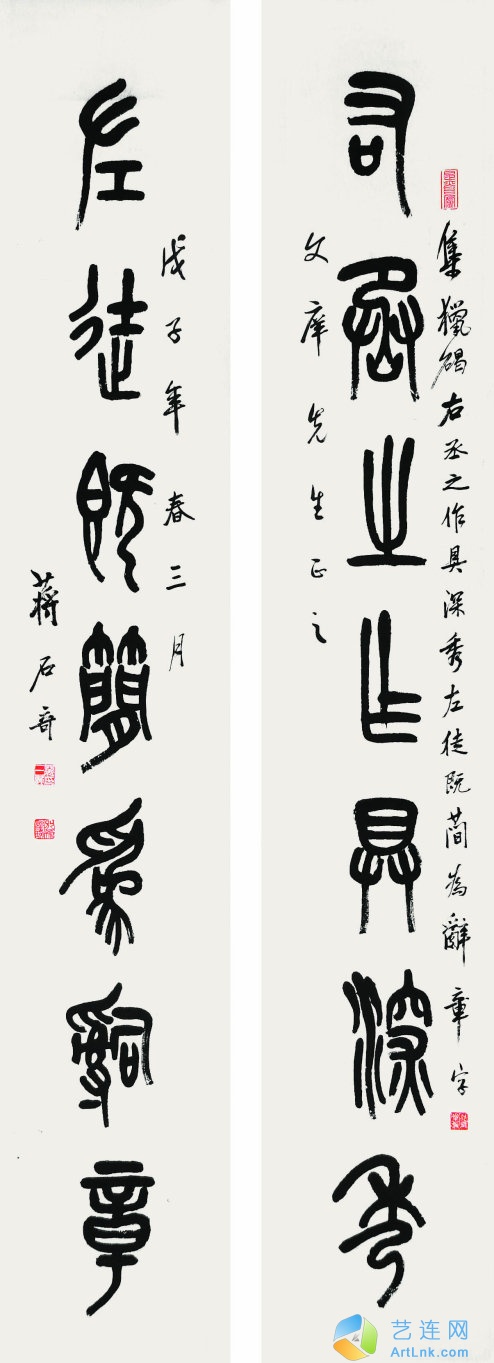 集獵碣右丞之作具深秀左徒既簡為辭章字
右丞之作具深秀
文庫先生正之
戊子年春三月
左徒既簡為辭章
蔣石奇
艺连网
ArtLnk.com